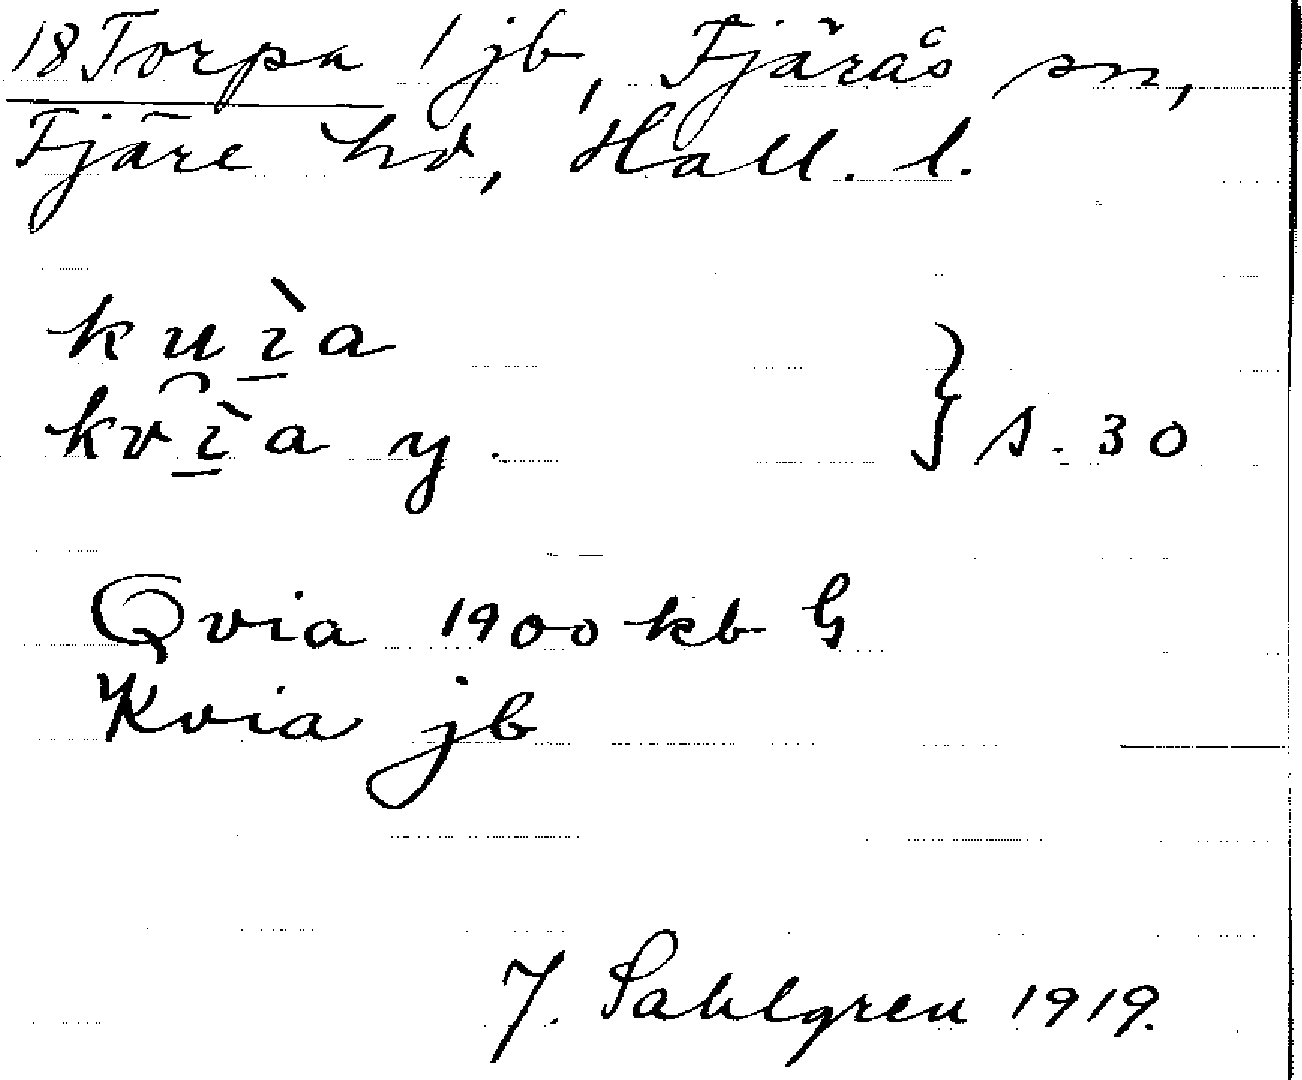 18 Torpa 1 jb, Fjärås sn,
Fjäre hd, Hall. l.
ku̯ı̱̀a
kvı̱̀a y. } s. 30
Qvia 1900 kb G
Kvia jb
J. Sahlgren 1919.